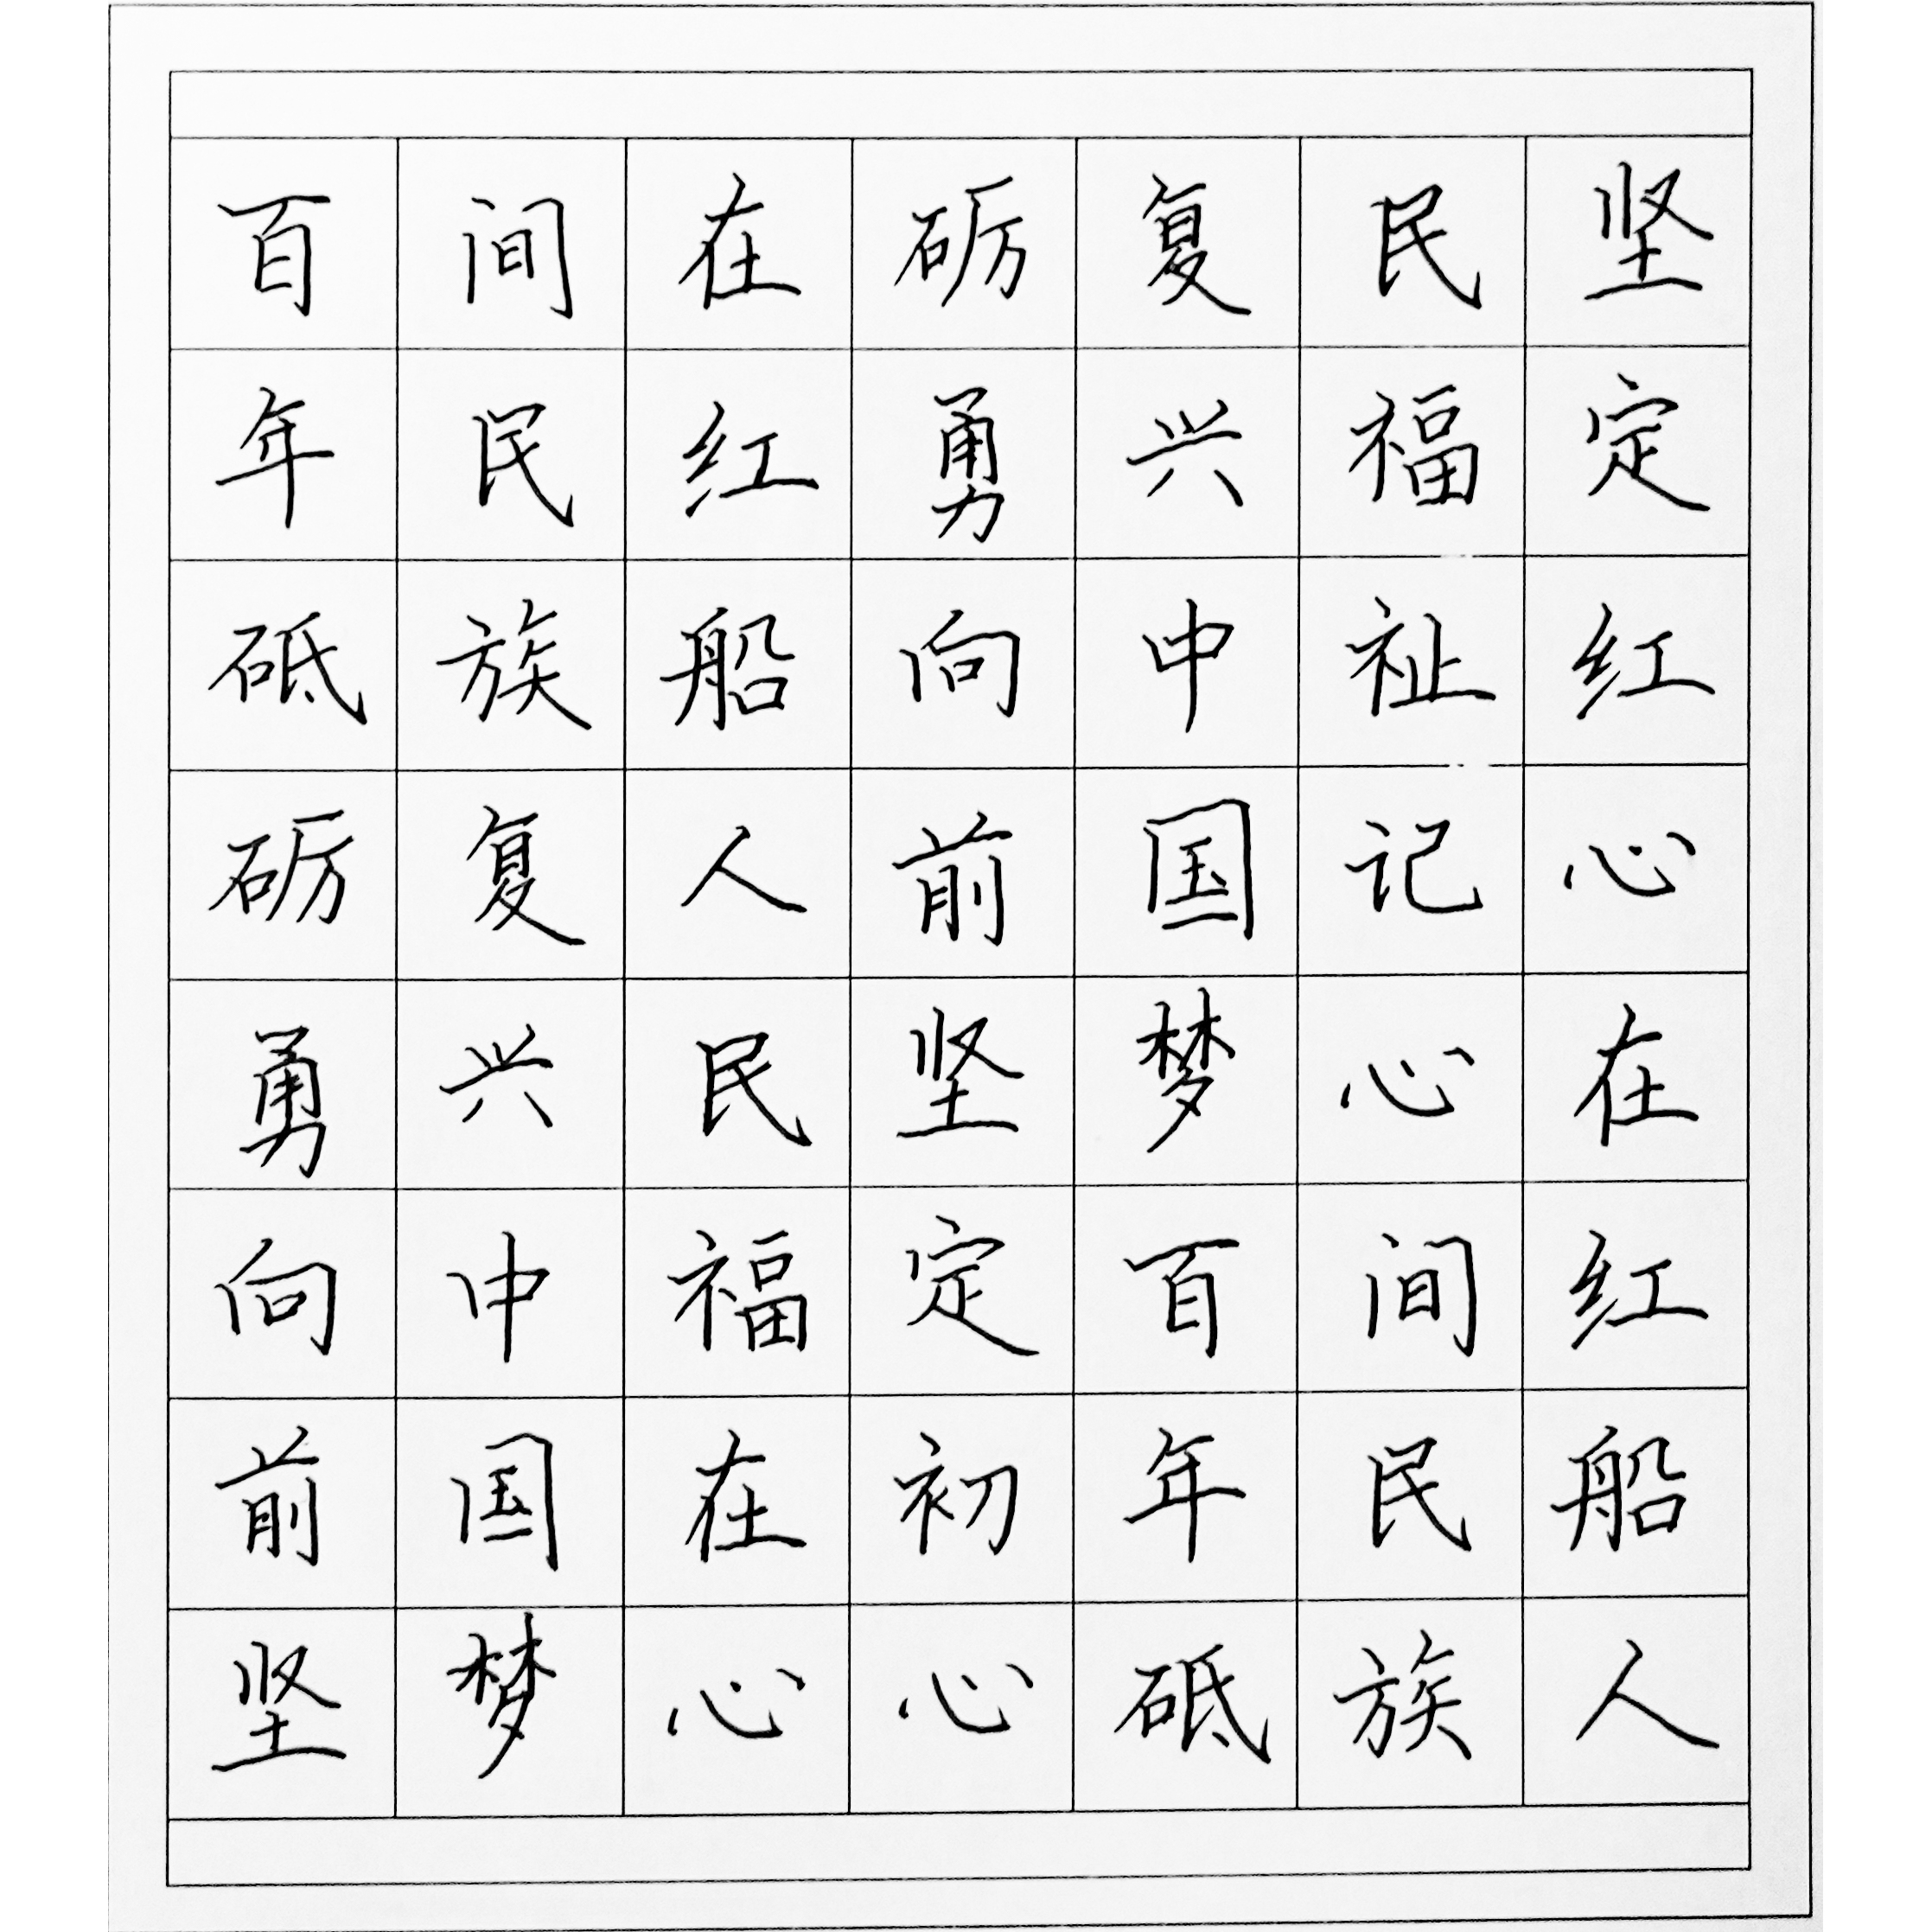 坚定红心在红船人
民福祉记心间民族
复兴中国梦百年砥
砺勇向前坚定初心
在红船人民福在心
间民族复兴中国梦
百年砥砺勇向前坚